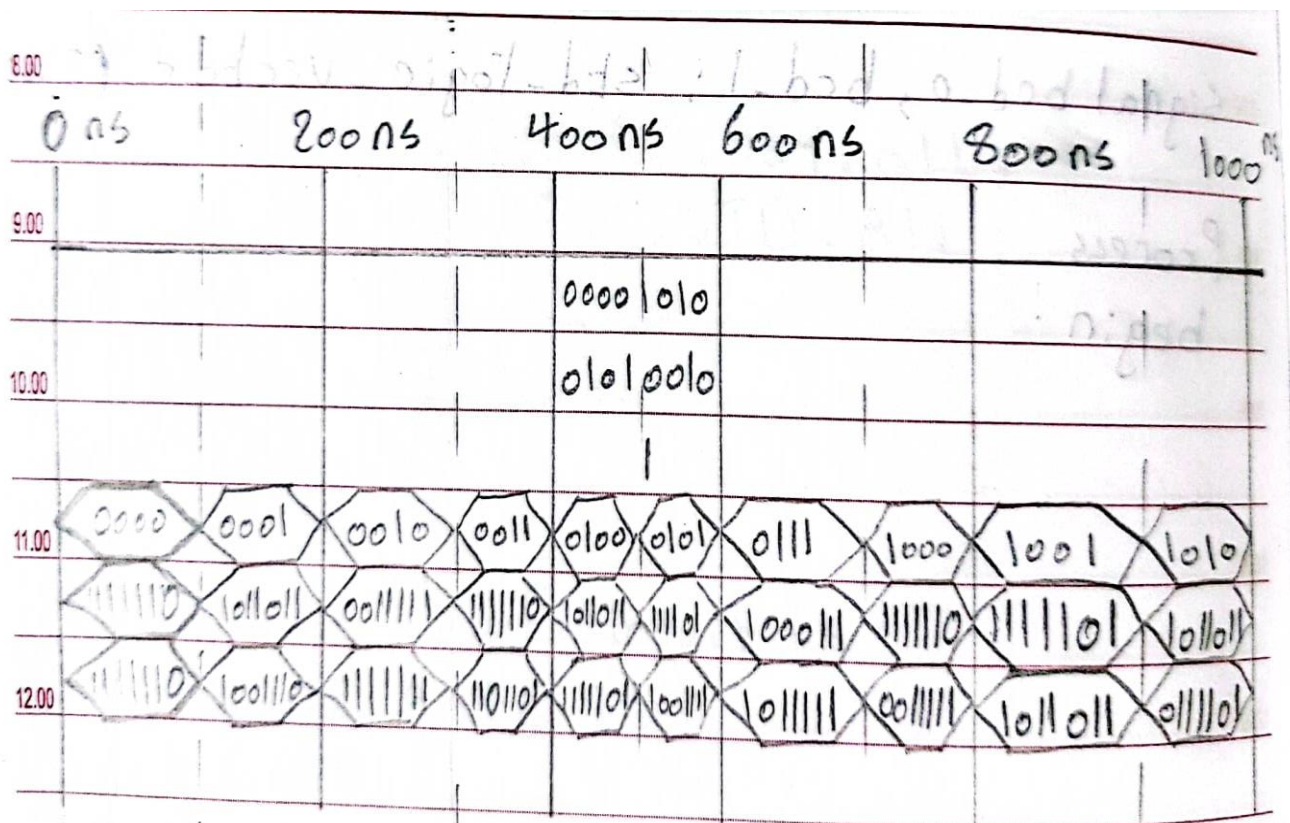 8.00
0 ns 200ns 400ns 600ns 800ns 1000 ns
9.00
0000 1010
0101 0010
10.00
1
0000 0001 0010 0011 0100 0101 0111 1000 1001 1010
11.00
1111110 1011011 0011111 1111110 1011011 111101 1000111 1111110 1111101 1011011
1111110 1001110 1111111 1101101 1111101 1001111 1011111 0011111 1011011 0111101
12.00